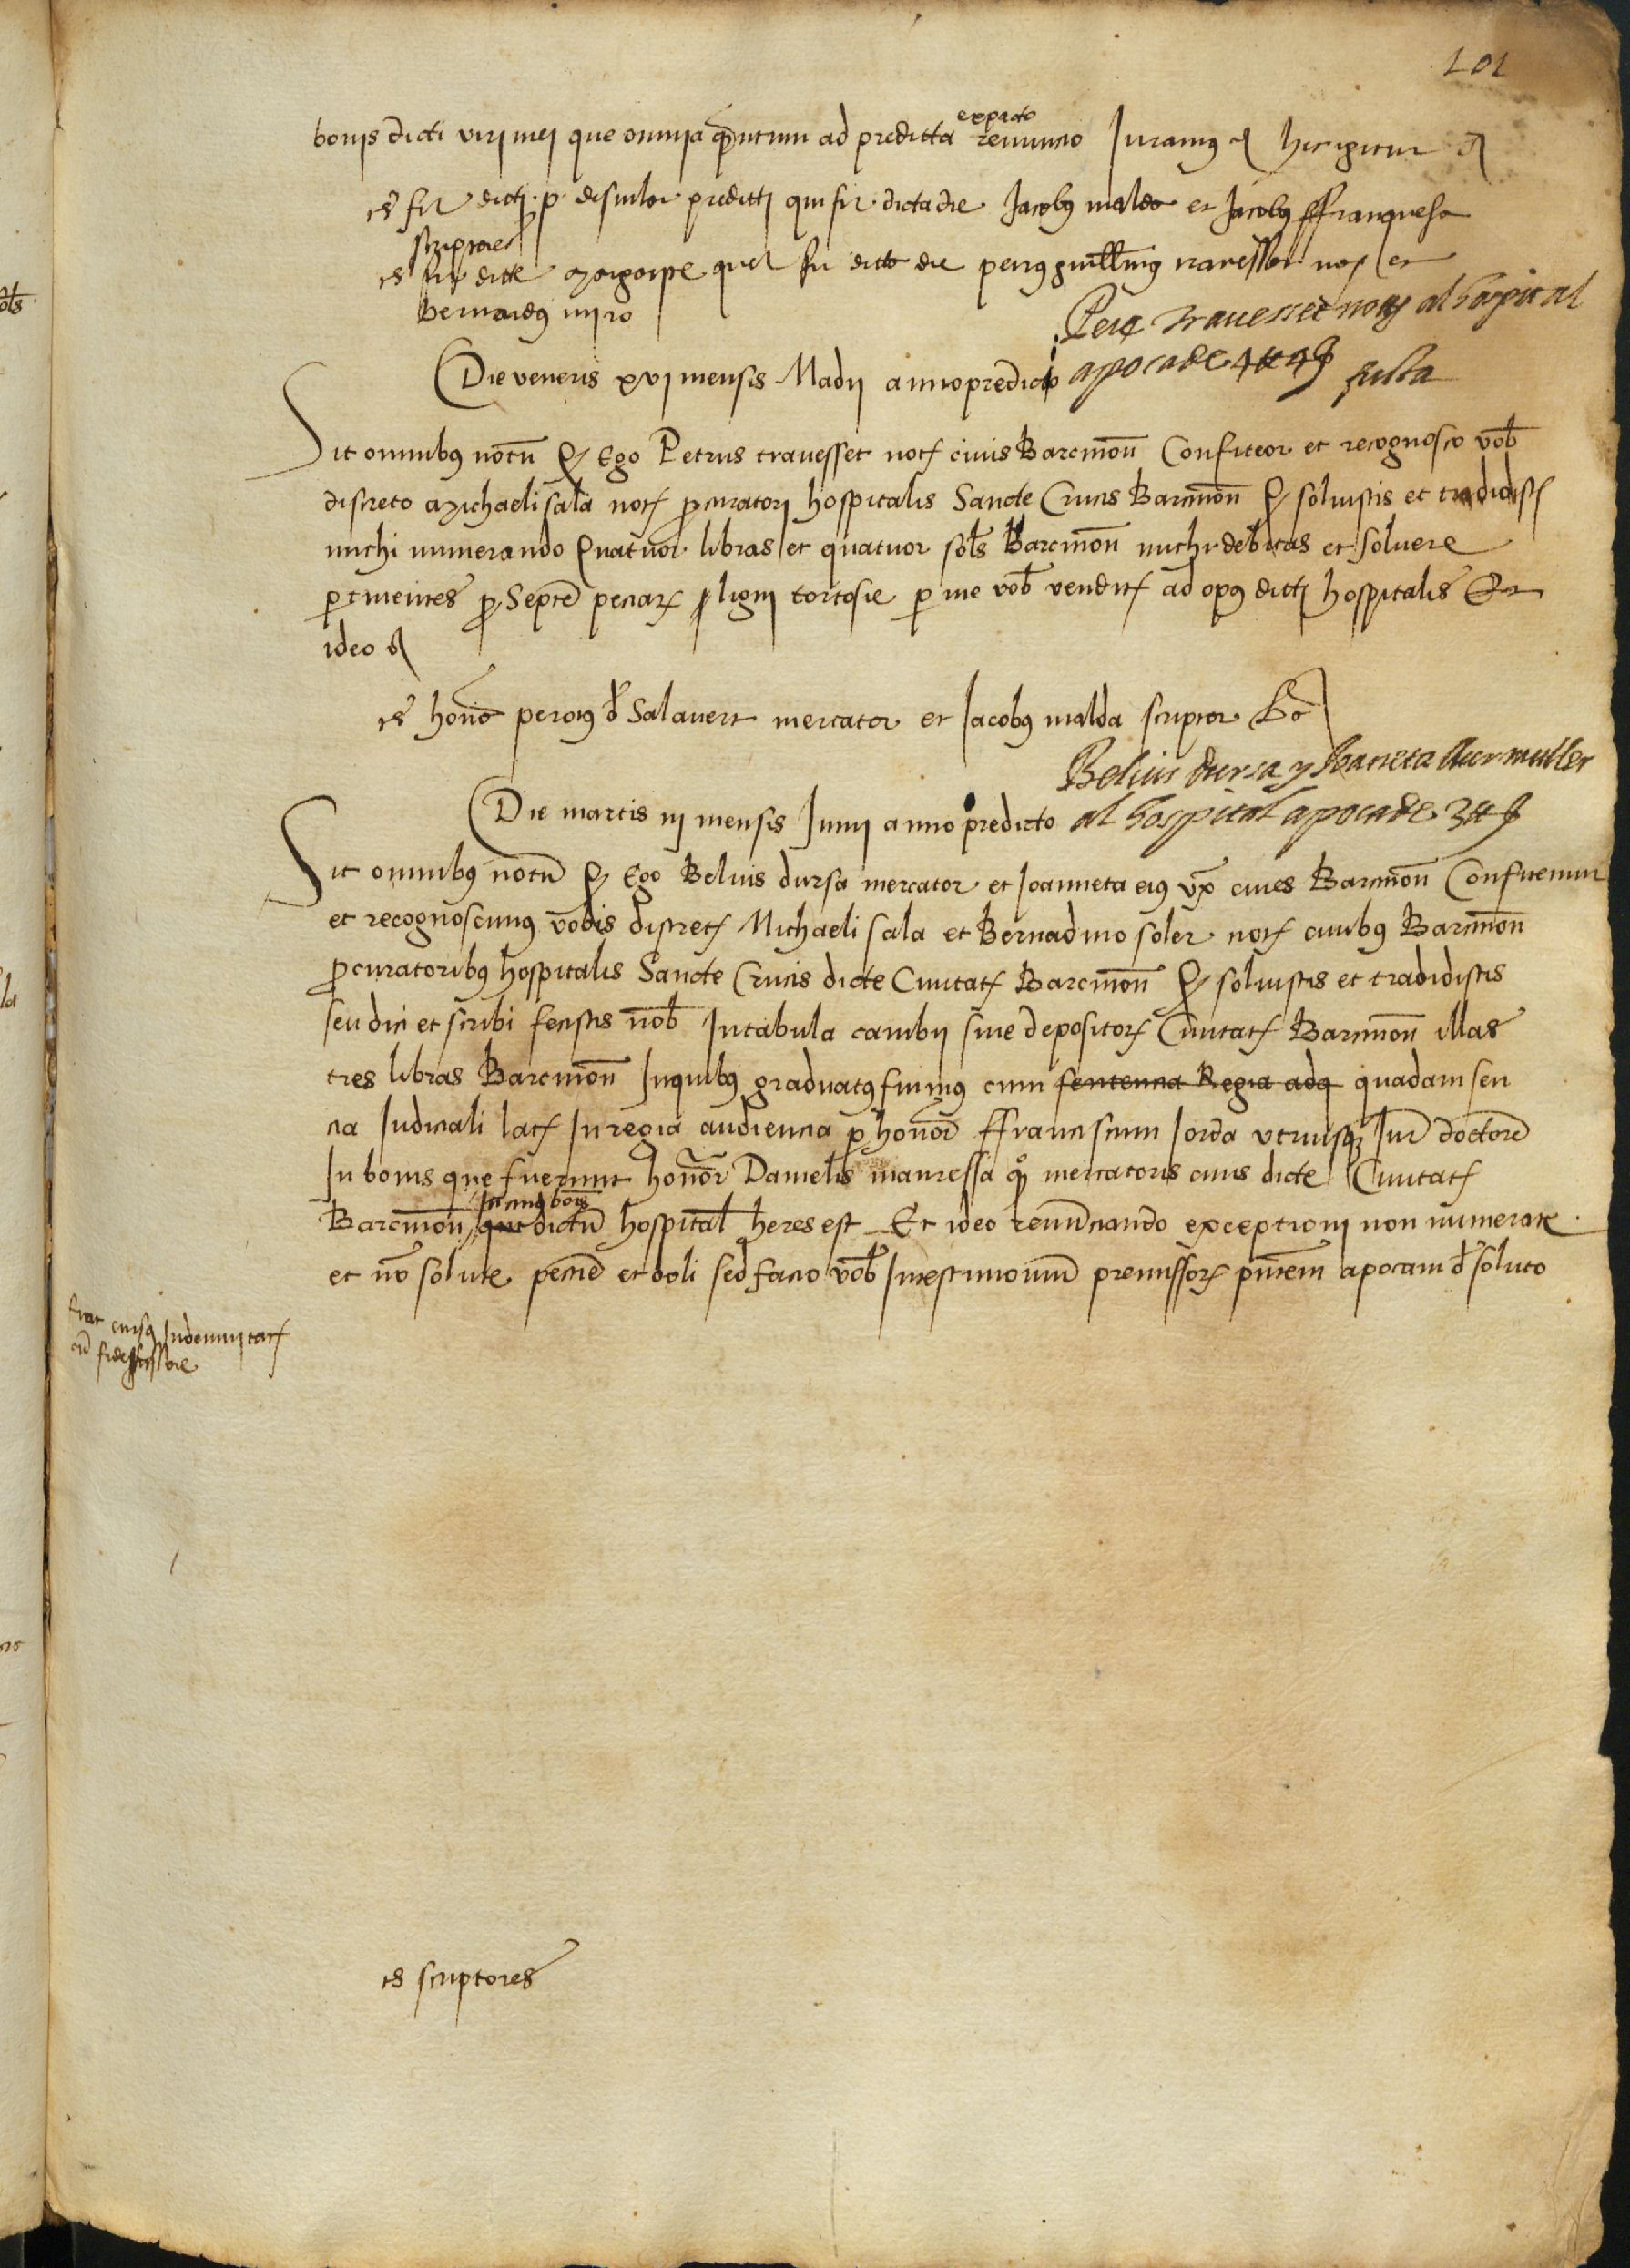 101
expacto
bonis dicti viri mei que omnia quantum ad predicta renuncio Iuramus et hec igitur et
ts fir dicti p desuilar predicti qui fir dicta die Jacobus malda et Jacobus ffranquesa
scriptores
ts fir dicte que fir dicto die petrus guillmus travesser not et
bernardus miro
Pere Travesset not al hospital
Die veneris xvi mensis Madij anno predicto apoca de 4 ll 4 s
Sit omnibus notu q Ego Petrus travesset not civis Barcinon Confiteor et recognosco vob
discreto Michaeli sala not procuratori hospitalis Sancte Crucis Barcinon q solvistis et tradidist
michi numerando Quatuor libras et quatuor sols Barcinon michi debitas et solvere
pertinentes pro Septe peciar ligni tortosie per me vob vendit ad opus dicti hospitalis Et
ideo et
ts honor perotus d Salavert mercator et Jacobus malda scriptor Bo
Beluis dursa y Joaneta sa muller
Die martis iij mensis Junij anno predicto al hospital apoca de 3 ll s
Sit omnibus notu q Ego Beluis dursa mercator et Joanneta eius vx cives Barcinon Confitemur
et recognoscimus vobis discret Michaeli sala et Bernadino soler not civibus Barcinon
procuratoribus hospitalis Sancte Crucis dicte Civitat Barcinon q solvistis et tradidistis
seu dici et scribi fecistis nob In tabula cambij sive depositor Civitat Barcinon illas
tres libras Barcinon In quibus graduatus fuimus cum sentencia Regia adq quadam sen
cia Iudiciali lat In regia audiencia p honor ffranciscum Jorda utriusq Iur doctore
In bonis que fuerunt honor Danielis manressa qo mercatoris civis dicte Civitat
In cuius bonis
Barcinon que dictu hospital heres est Et ideo renunciando exceptioni non numerate
et no solute pecunie et doli sed facio vob In testimoniu premissor pntem apocam d soluto
fiat cu sua Indemnitat
cu fideiussore
ts scriptores